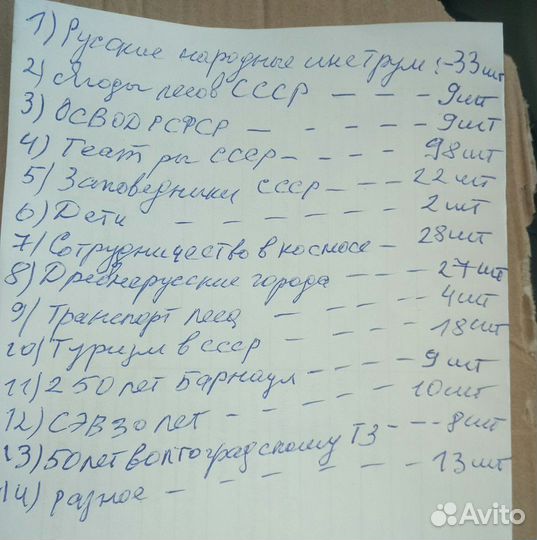 1) Русские народные инструм :-33шт
2) Ягоды лесов СССР - - - 9шт
3) ОСВОД РСФСР - - - - - 9шт
4) Театры СССР - - - - 98шт
5) Заповедники СССР - - - 22шт
6) Дети - - - - - 2шт
7) Сотрудничество в космосе - 28шт
8) Древнерусские города - - - 27шт
9) Транспорт леса - - - - 4шт
10) Туризм в СССР - - - - 18шт
11) 250 лет Барнаул - - - - 9шт
12) СЭВ 30 лет - - - - - 10шт
13) 50 лет волгоградскому ТЗ - - - 8шт
14) разное - - - - - - 13шт
Avito